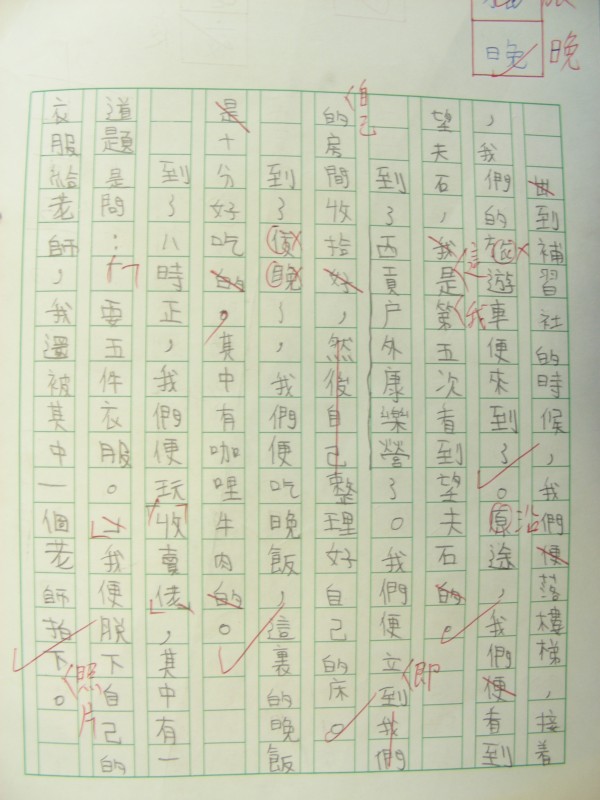 晚
晚
到補習社的時候，我們便落樓梯，接着
，我們的遊車便來到了。原途，我們便看到
沿
望夫石，我是第五次看到望夫石的。
這
我
到了西貢户外康樂營了。我們便立到我們
即
的房間收拾好，然後自己整理好自己的床。
自己
到了傍晚了，我們便吃晚飯，這裏的晚飯
是十分好吃的，其中有咖哩牛肉的。
到了八時正，我們便玩收賣佬，其中有一
道題是問：要五件衣服。我便脱下自己的
衣服給老師，我還被其中一個老師拍下。
照片